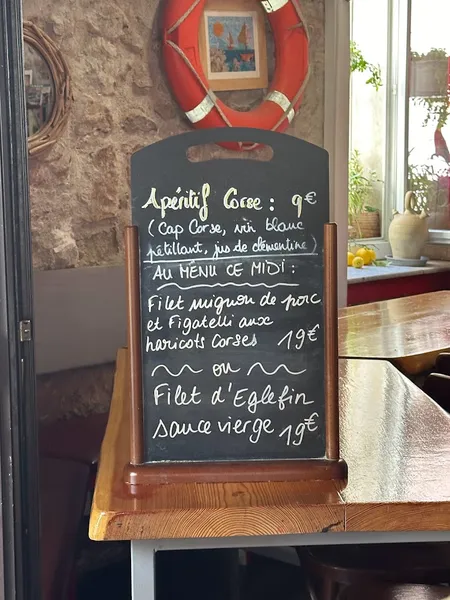 Apéritif Corse : 9€
(Cap Corse, vin blanc
pétillant, jus de clémentine)
AU MENU CE MIDI :
Filet mignon de porc
et Figatelli aux
haricots corses 19€
ou
Filet d'Eglefin
sauce vierge 19€